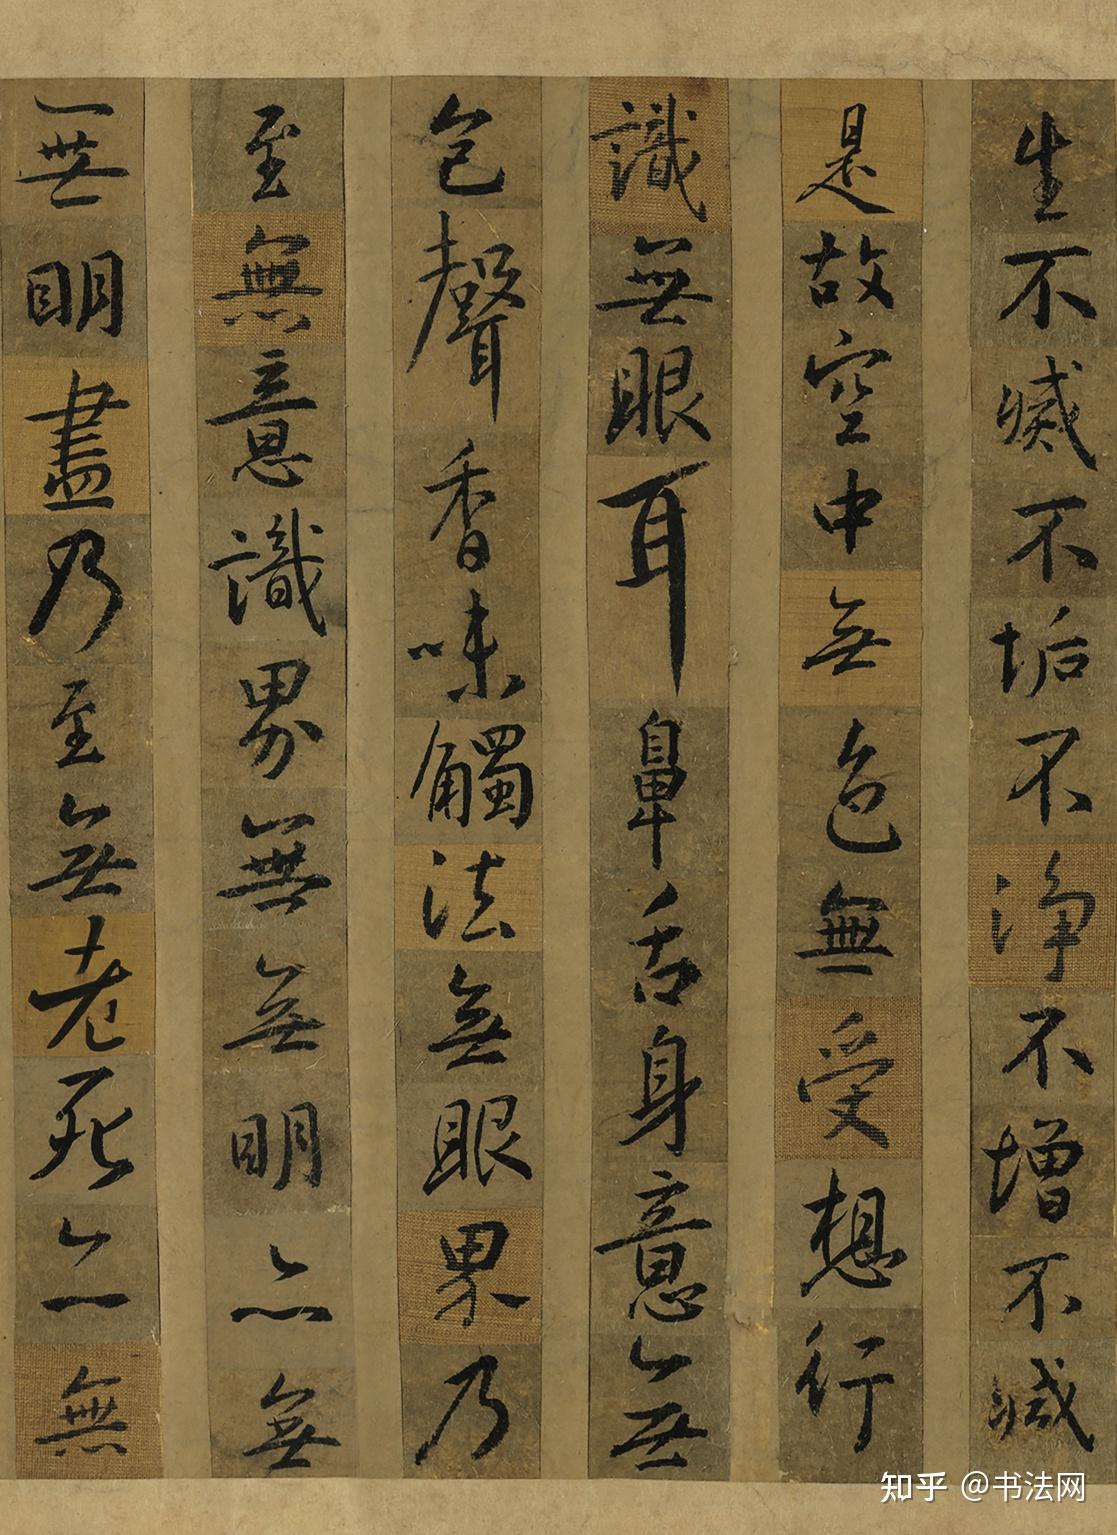 生不滅不垢不淨不增不減
是故空中無色無受想行
識無眼耳鼻舌身意無
色聲香味觸法無眼界乃
至無意識界無無明亦無
無明盡乃至無老死亦無
知乎 @书法网